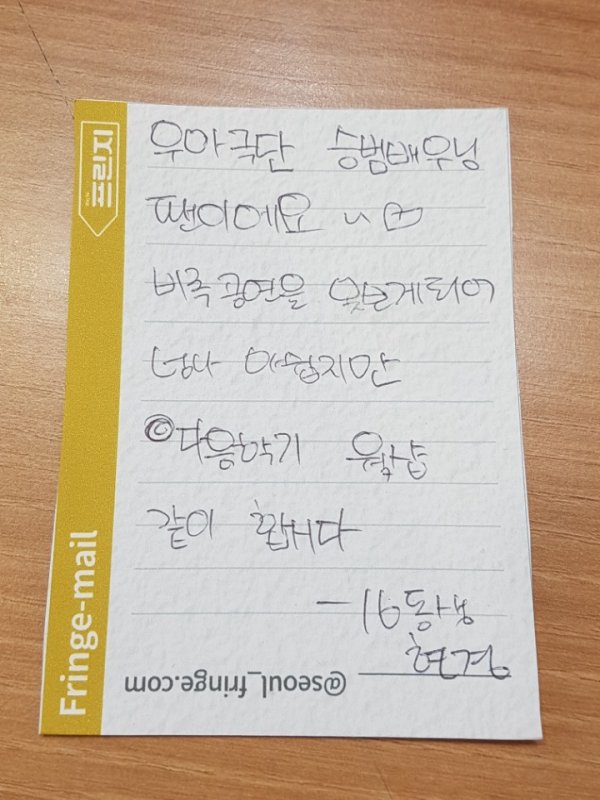 우아극단 승범배우님
팬이에요
비록 공연을 못보게되어
너무나 아쉽지만
다음학기 워크샵
같이 합시다
- 16 동기
현경
@seoul_fringe.com
Fringe-mail
프린지